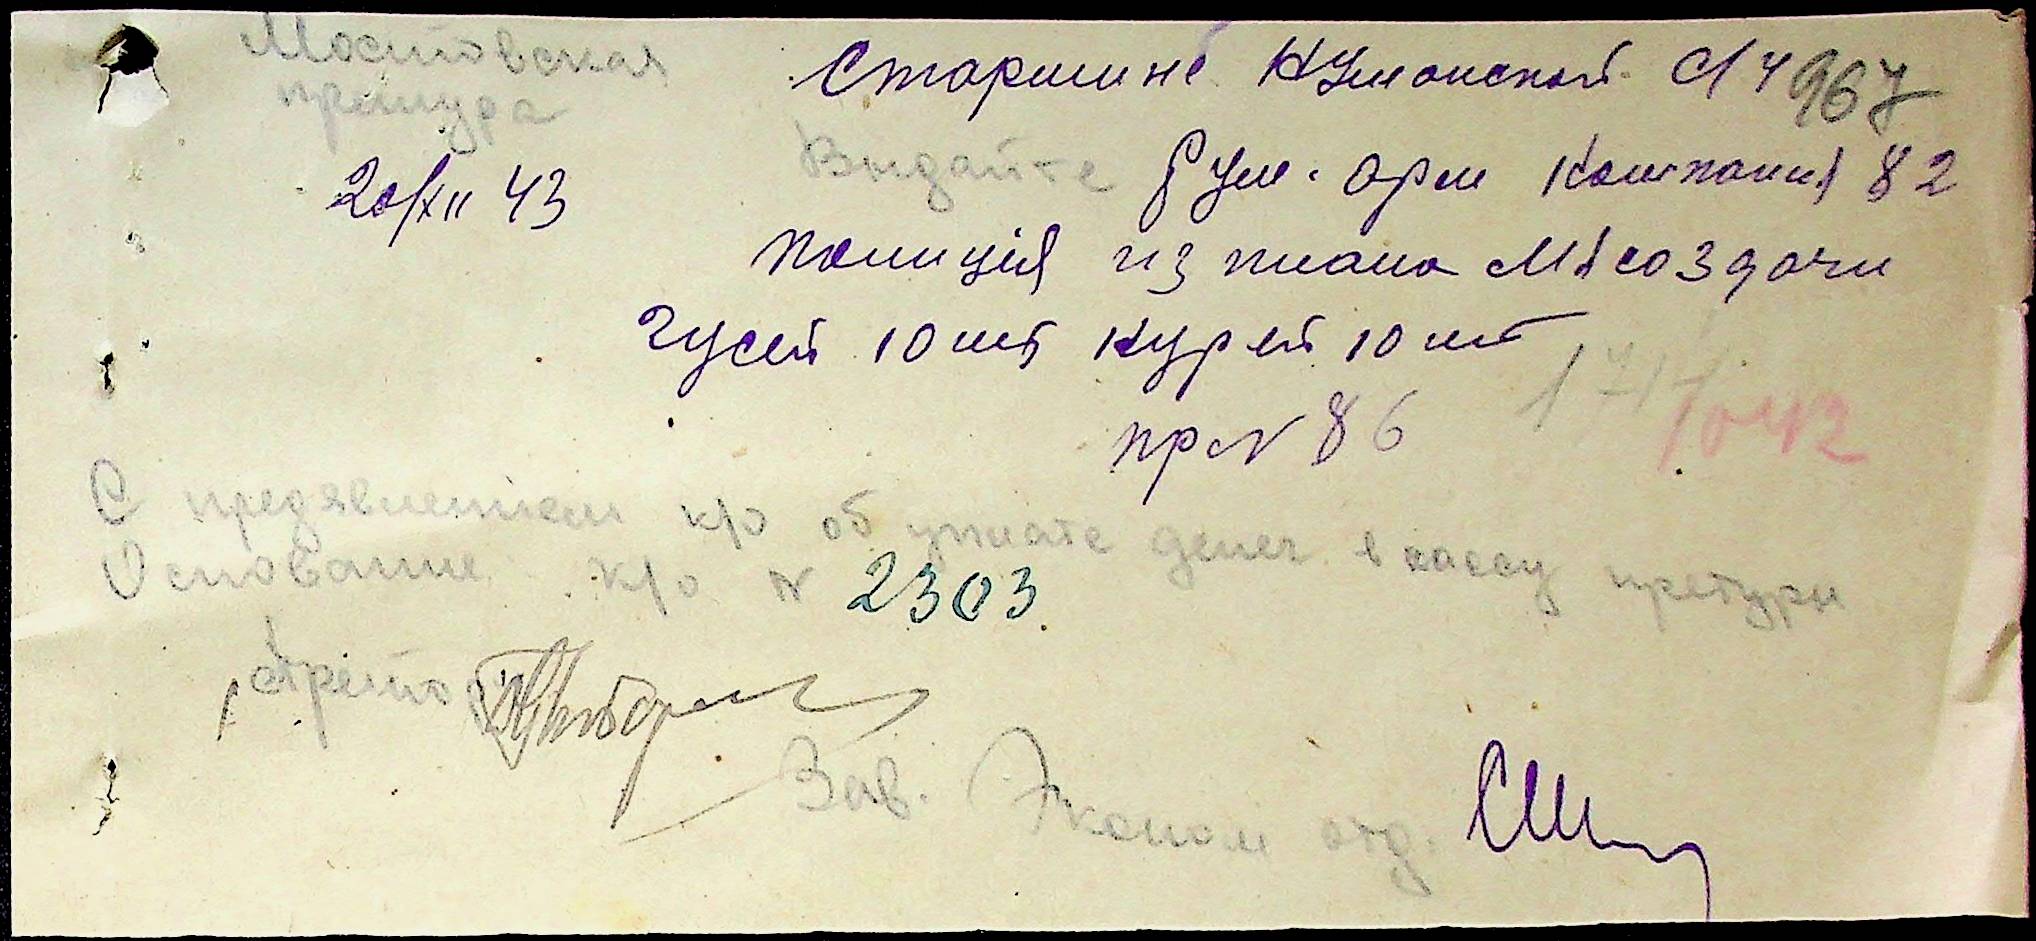 Мостовская
претура
20/XII 43
Старшине Кумонской С/У 967
Выдайте Рум. Арм Компания 82
полиция из плана Мясоздачи
гусей 10 шт Курей 10 шт
пр N 86
С предявлением к/о об уплате денег в кассу претуры
Основание к/о N 2303.
Претор
Зав. Эконом отд.